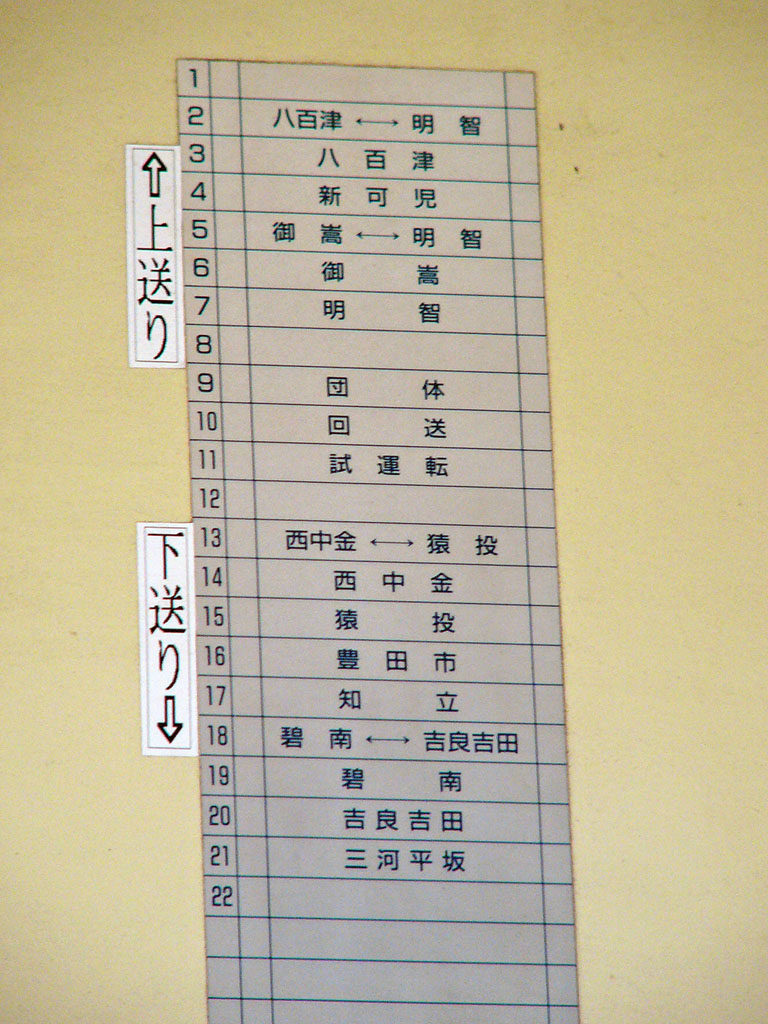 1
2 八百津 ←→ 明智
3 八百津
4 新可児
5 御嵩 ←→ 明智
6 御嵩
7 明智
8
9 団体
10 回送
11 試運転
12
13 西中金 ←→ 猿投
14 西中金
15 猿投
16 豊田市
17 知立
18 碧南 ←→ 吉良吉田
19 碧南
20 吉良吉田
21 三河平坂
22
⇧上送り
下送り⇩